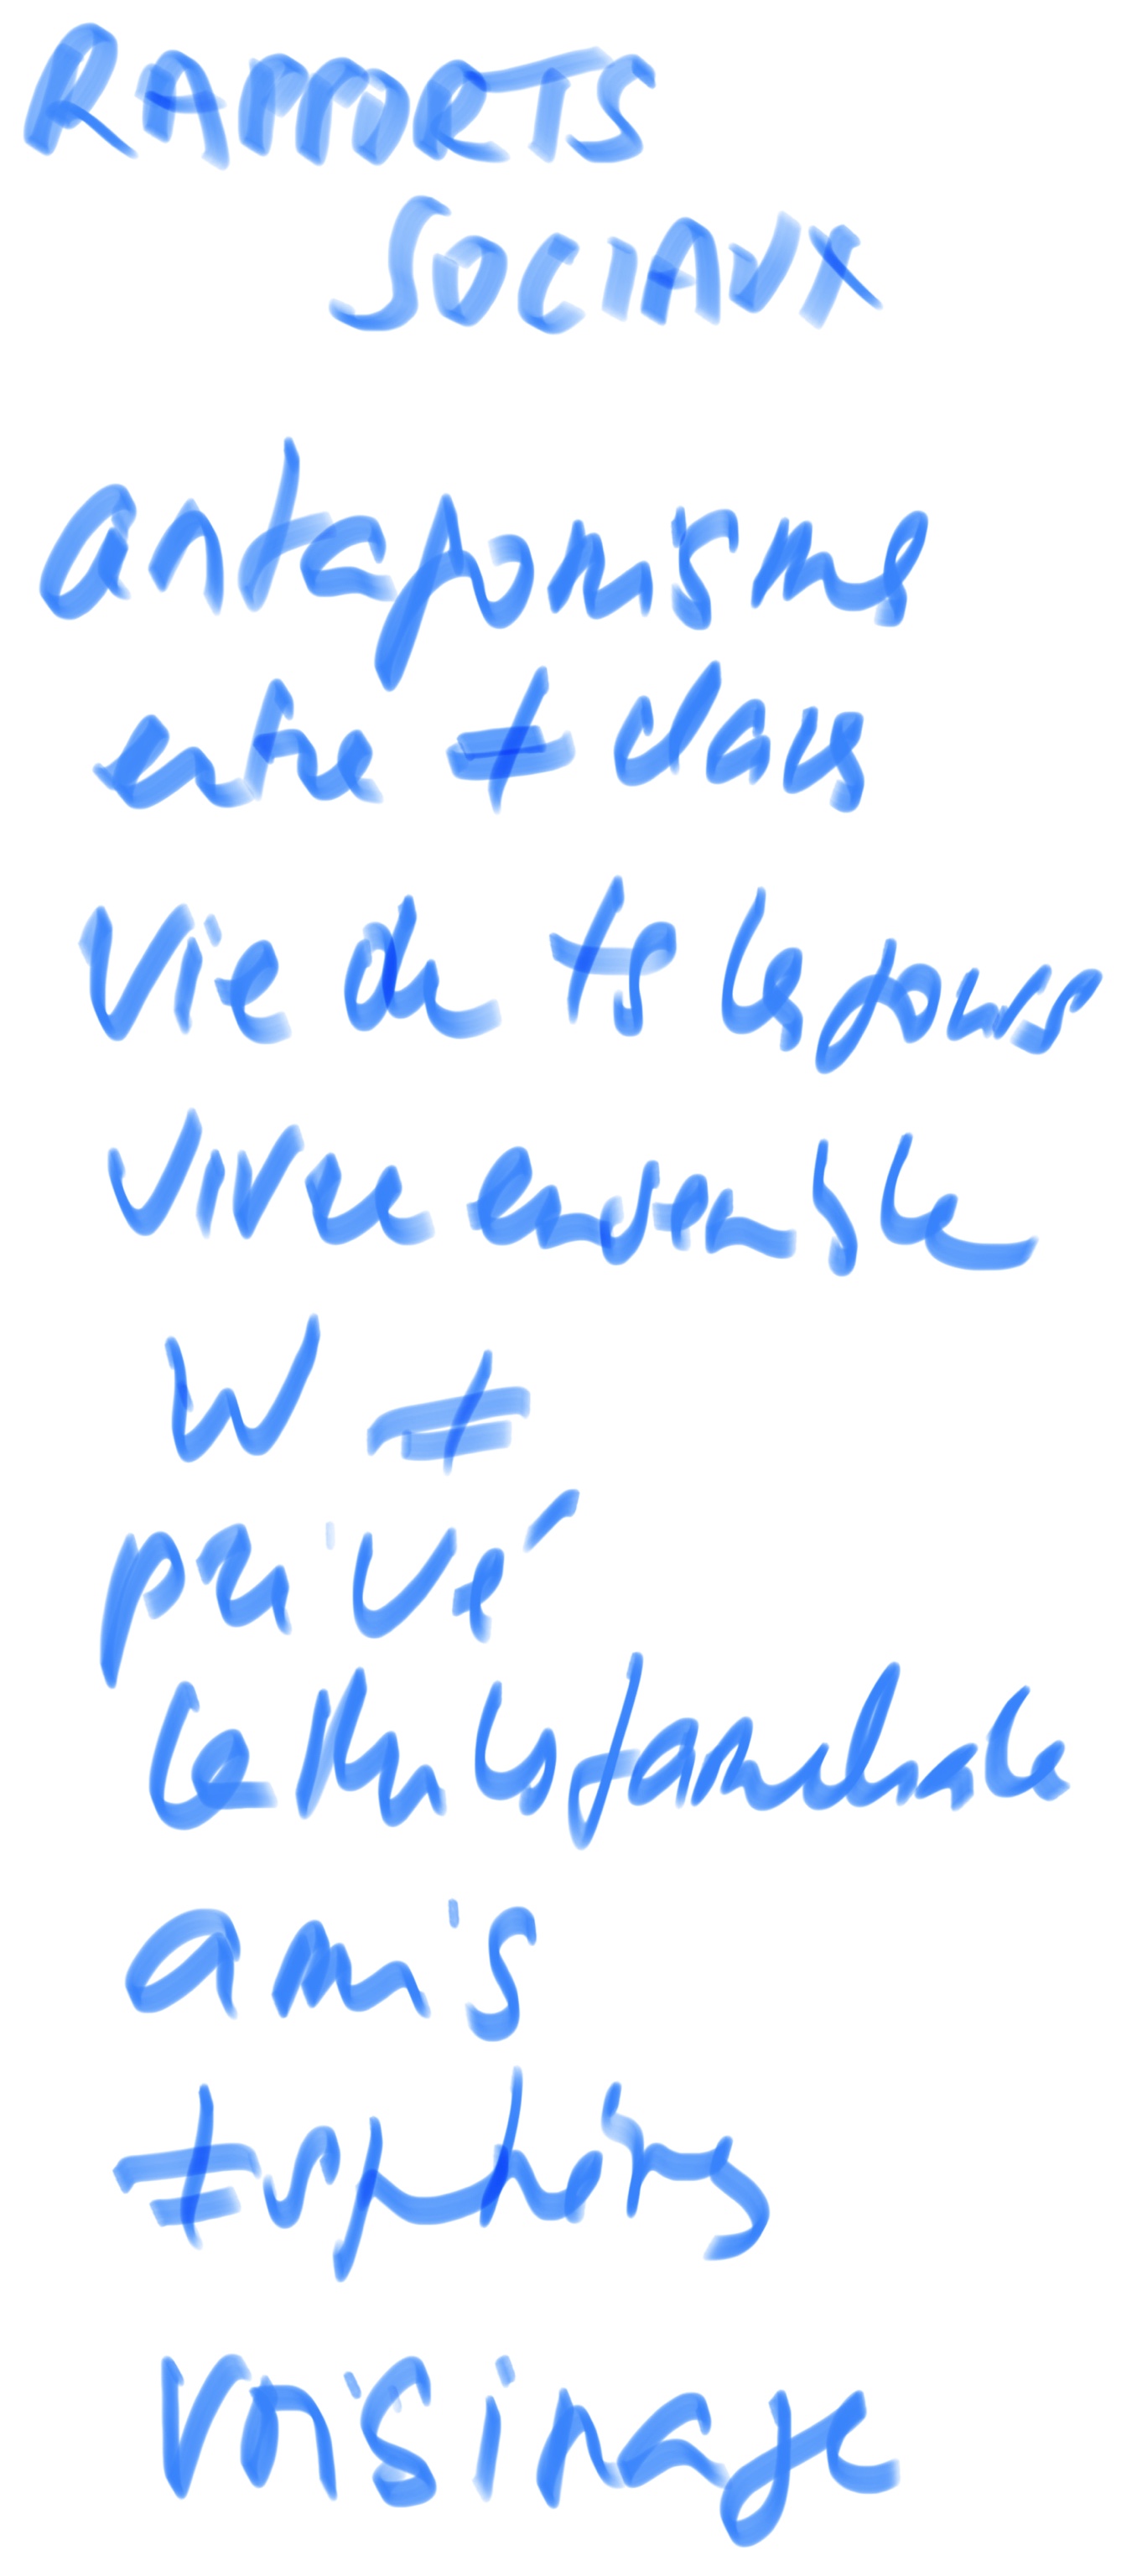 RAPPORTS
SOCIAUX
antagonisme
entre ≠ class
Vie de ts les jours
vivre ensemble
W ≠
privé
cellules familiale
amis
≠ sphères
voisinage